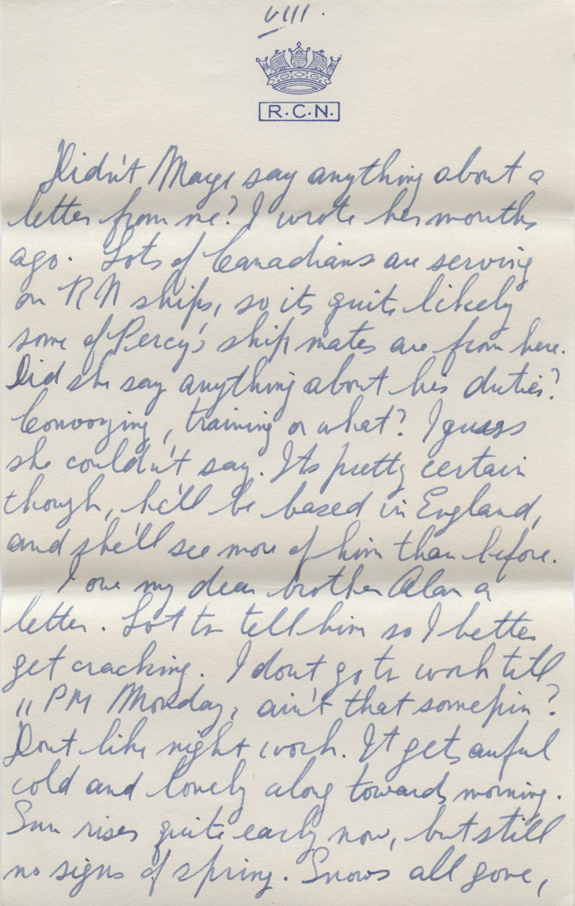 VIII.
R.C.N.
Didn't Marge say anything about a
letter from me? I wrote her months
ago. Lots of Canadians are serving
on RN ships, so its quite likely
some of Percy's ship mates are from here.
Did she say anything about his duties?
Convoying, training or what? I guess
she couldn't say. Its pretty certain
though, he'll be based in England,
and she'll see more of him than before.
I owe my dear brother Alan a
letter. Lot to tell him so I better
get cracking. I dont go to work till
11 PM Monday, ain't that somepin?
Dont like night work. It gets awful
cold and lonely along towards morning.
Sun rises quite early now, but still
no signs of spring. Snows all gone,